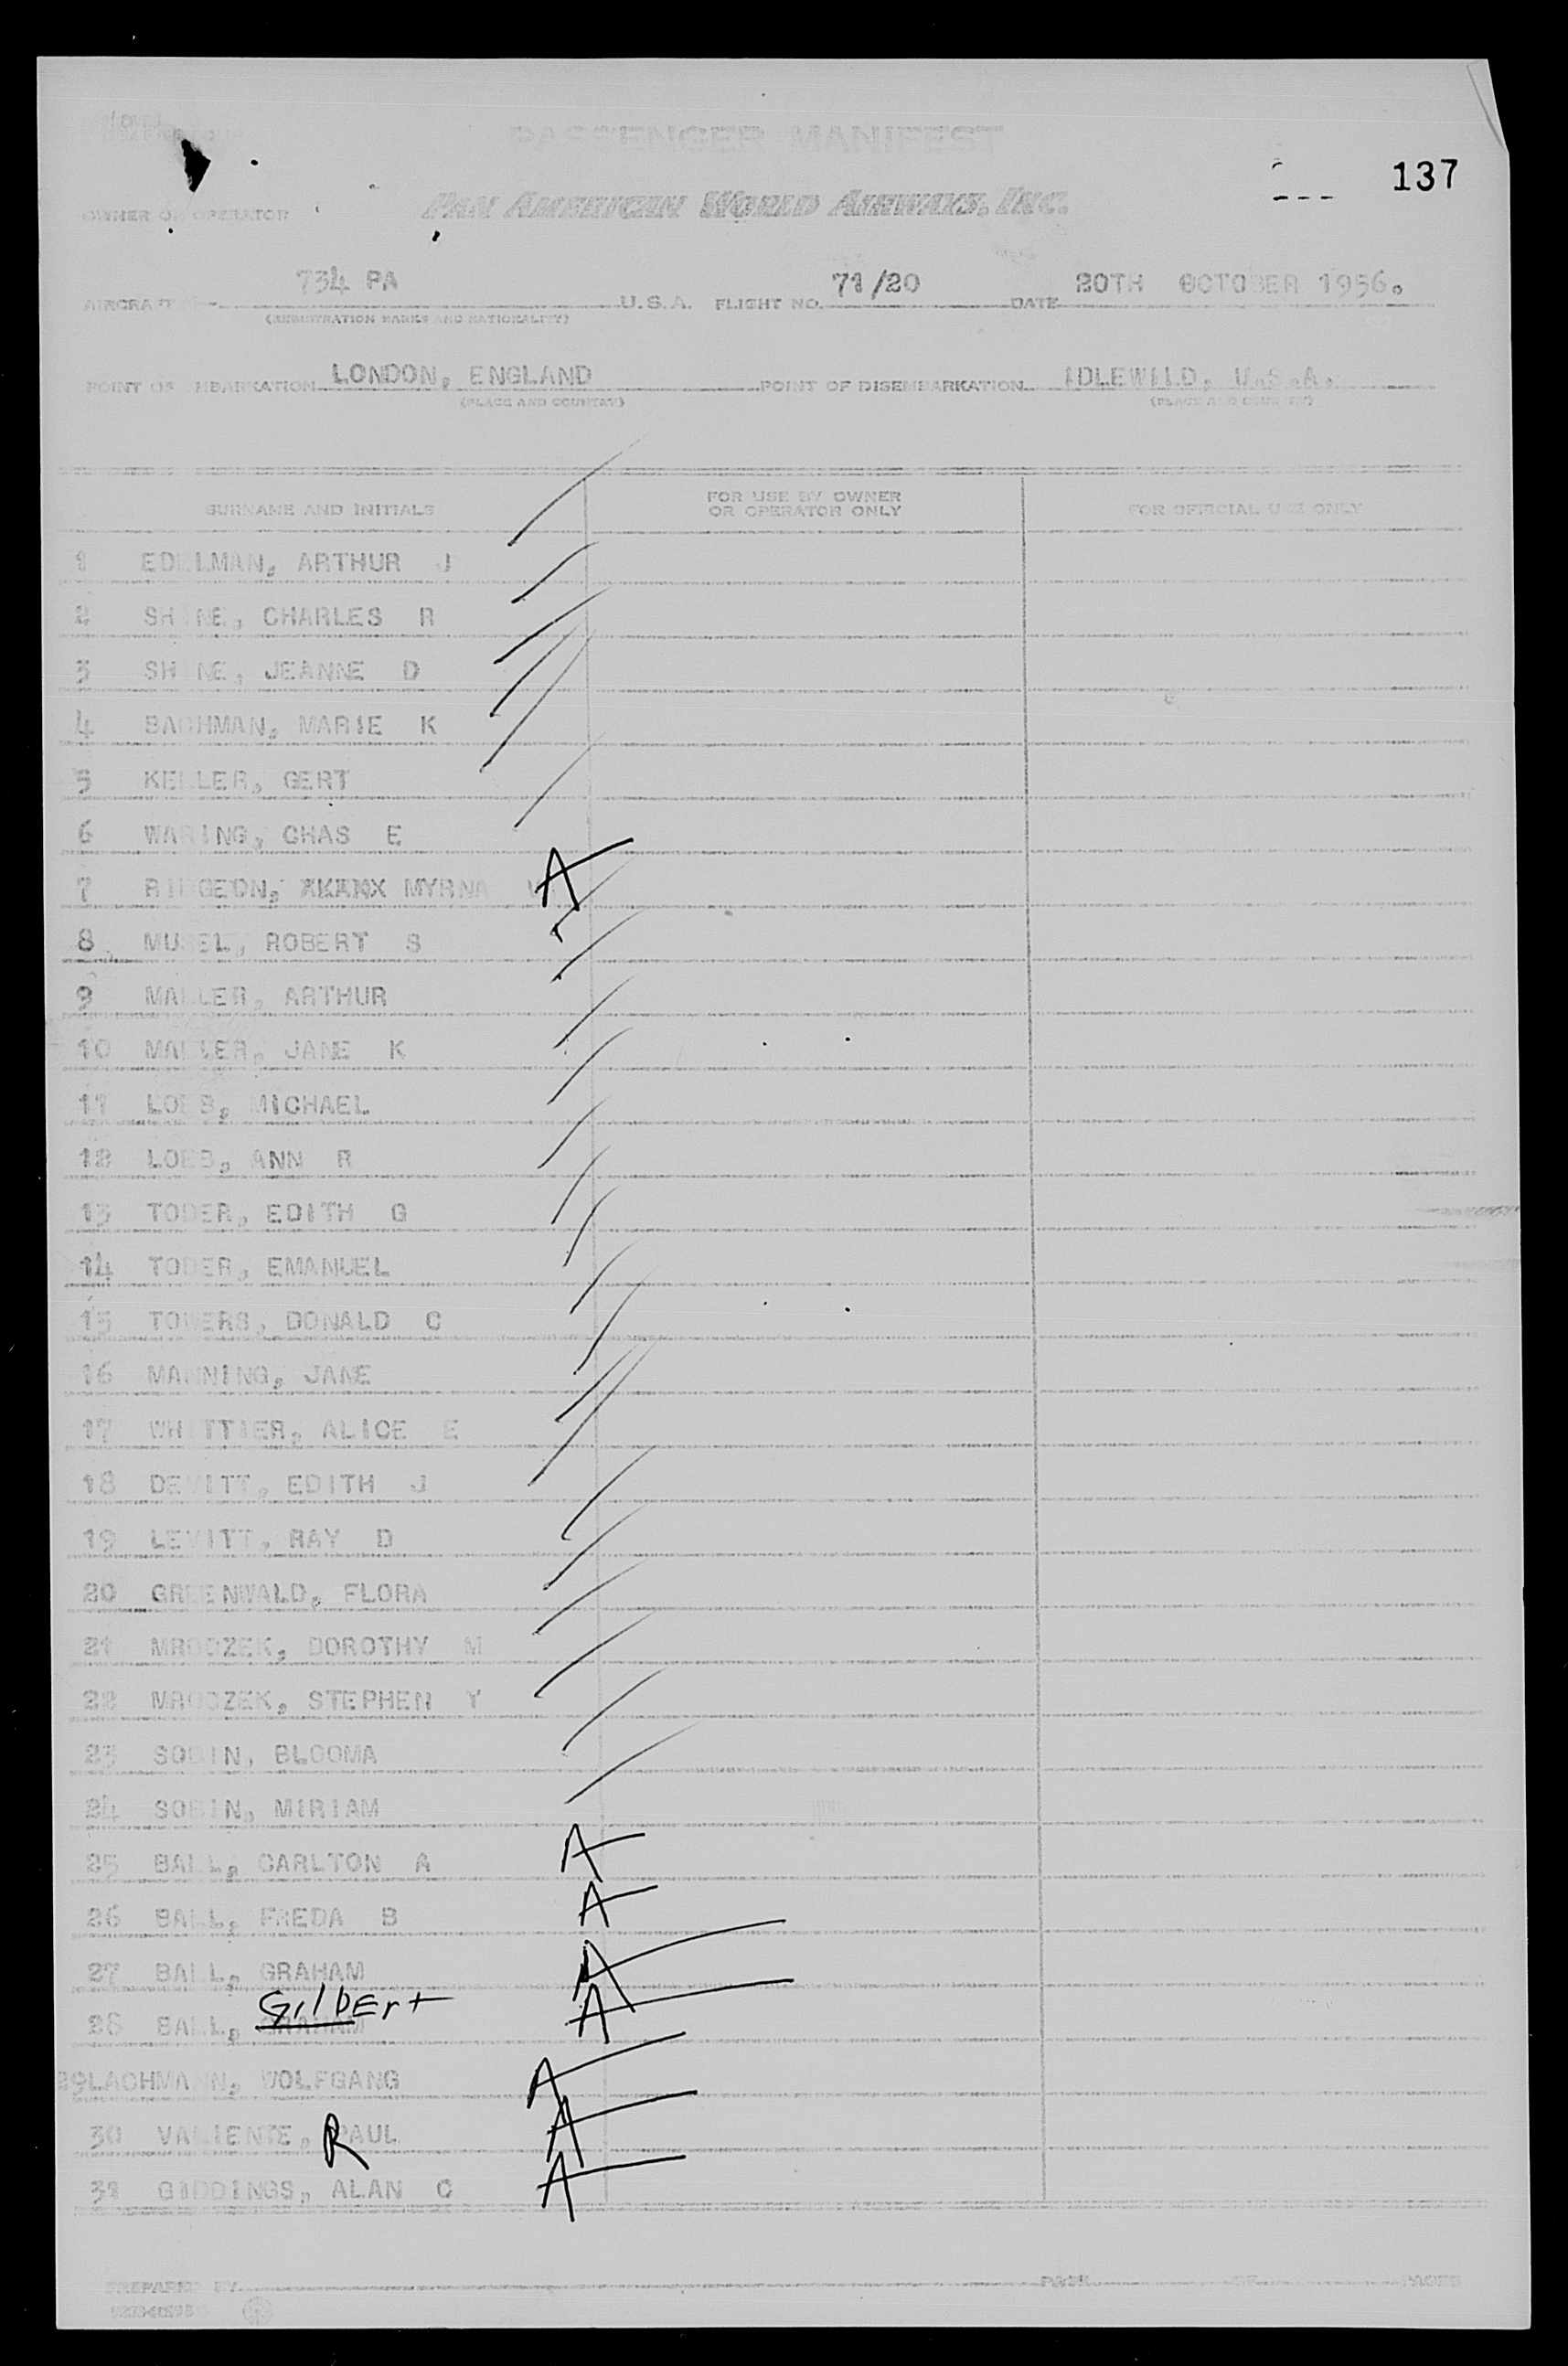 PASSENGER MANIFEST
137
OWNER OR OPERATOR
PAN AMERICAN WORLD AIRWAYS, INC.
AIRCRAFT 734 PA U.S.A. FLIGHT NO. 71/20 DATE 20TH OCTOBER 1956.
(REGISTRATION MARKS AND NATIONALITY)
POINT OF EMBARKATION LONDON, ENGLAND POINT OF DISEMBARKATION IDLEWILD, U.S.A.
(PLACE AND COUNTRY) (PLACE AND COUNTRY)
SURNAME AND INITIALS FOR USE BY OWNER OR OPERATOR ONLY FOR OFFICIAL USE ONLY
1 EDELMAN, ARTHUR J
2 SHINE, CHARLES R
3 SHINE, JEANNE D
4 BACHMAN, MARIE K
5 KELLER, GERT
6 WARING, CHAS E
7 MYRNA A
8 MUSEL, ROBERT S
9 MALLER, ARTHUR
10 MALLER, JANE K
11 LOEB, MICHAEL
12 LOEB, ANN R
13 TODER, EDITH G
14 TODER, EMANUEL
15 TOWERS, DONALD C
16 MANNING, JANE
17 WHITTIER, ALICE E
18 DEWITT, EDITH J
19 LEVITT, RAY D
20 GREENWALD, FLORA
21 MROCZEK, DOROTHY M
22 MROCZEK, STEPHEN Y
23 SOBIN, BLOOMA
24 SOBIN, MIRIAM
25 BALL, CARLTON A A
26 BALL, FREDA B A
27 BALL, GRAHAM A
Gilbert
28 BALL, GRAHAM A
29 LACHMANN, WOLFGANG A
30 VALIENTE, R PAUL A
31 GIDDINGS, ALAN C A
PREPARED BY PAGE OF PAGES